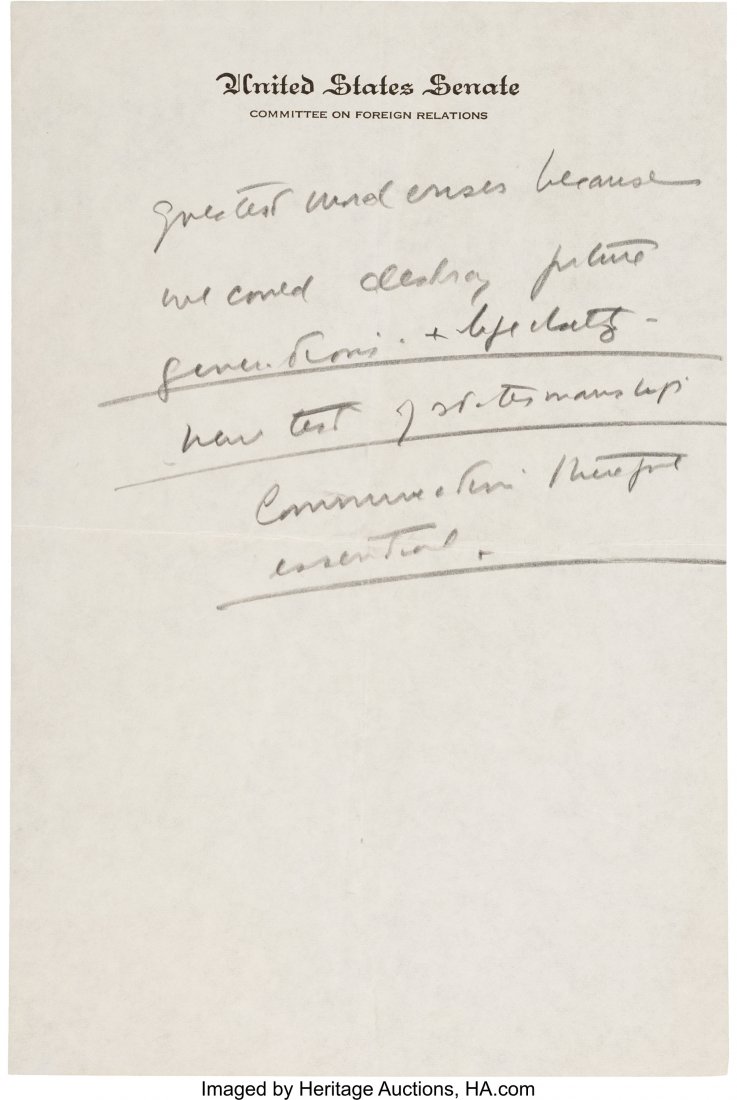 United States Senate
COMMITTEE ON FOREIGN RELATIONS
greatest moral crises because
we could destroy future
generations. +
new test of statesmanship
Communication therefore
essential.
Imaged by Heritage Auctions, HA.com